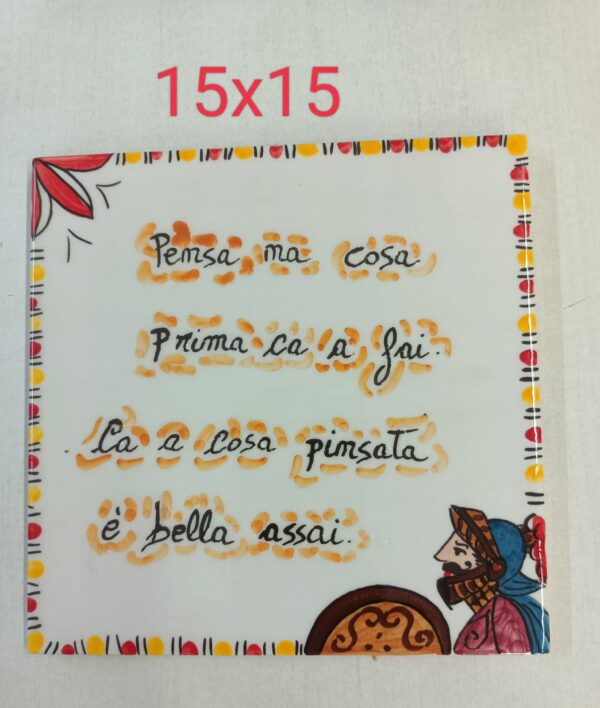 15x15
Pensa na cosa.
Prima ca a fai.
Ca a cosa pinsata
è bella assai.